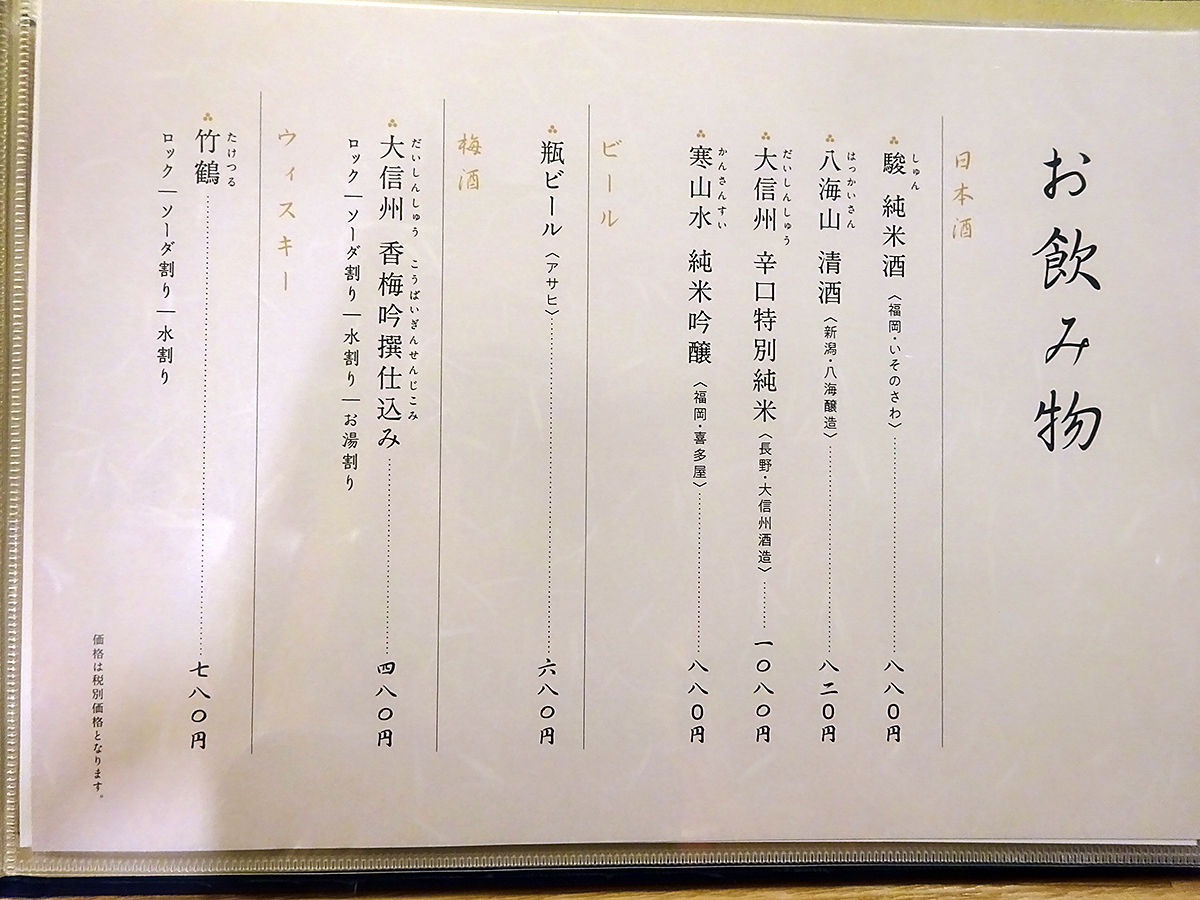 お飲み物
日本酒
しゅん
駿 純米酒〈福岡・いそのさわ〉八八〇円
はっかいさん
八海山 清酒〈新潟・八海醸造〉八二〇円
だいしんしゅう
大信州 辛口特別純米〈長野・大信州酒造〉一〇八〇円
かんさんすい
寒山水 純米吟醸〈福岡・喜多屋〉八八〇円
ビール
瓶ビール〈アサヒ〉六八〇円
梅酒
だいしんしゅう こうばいぎんせんじこみ
大信州 香梅吟撰仕込み 四八〇円
ロック｜ソーダ割り｜水割り｜お湯割り
ウィスキー
たけつる
竹鶴 七八〇円
ロック｜ソーダ割り｜水割り
価格は税別価格となります。